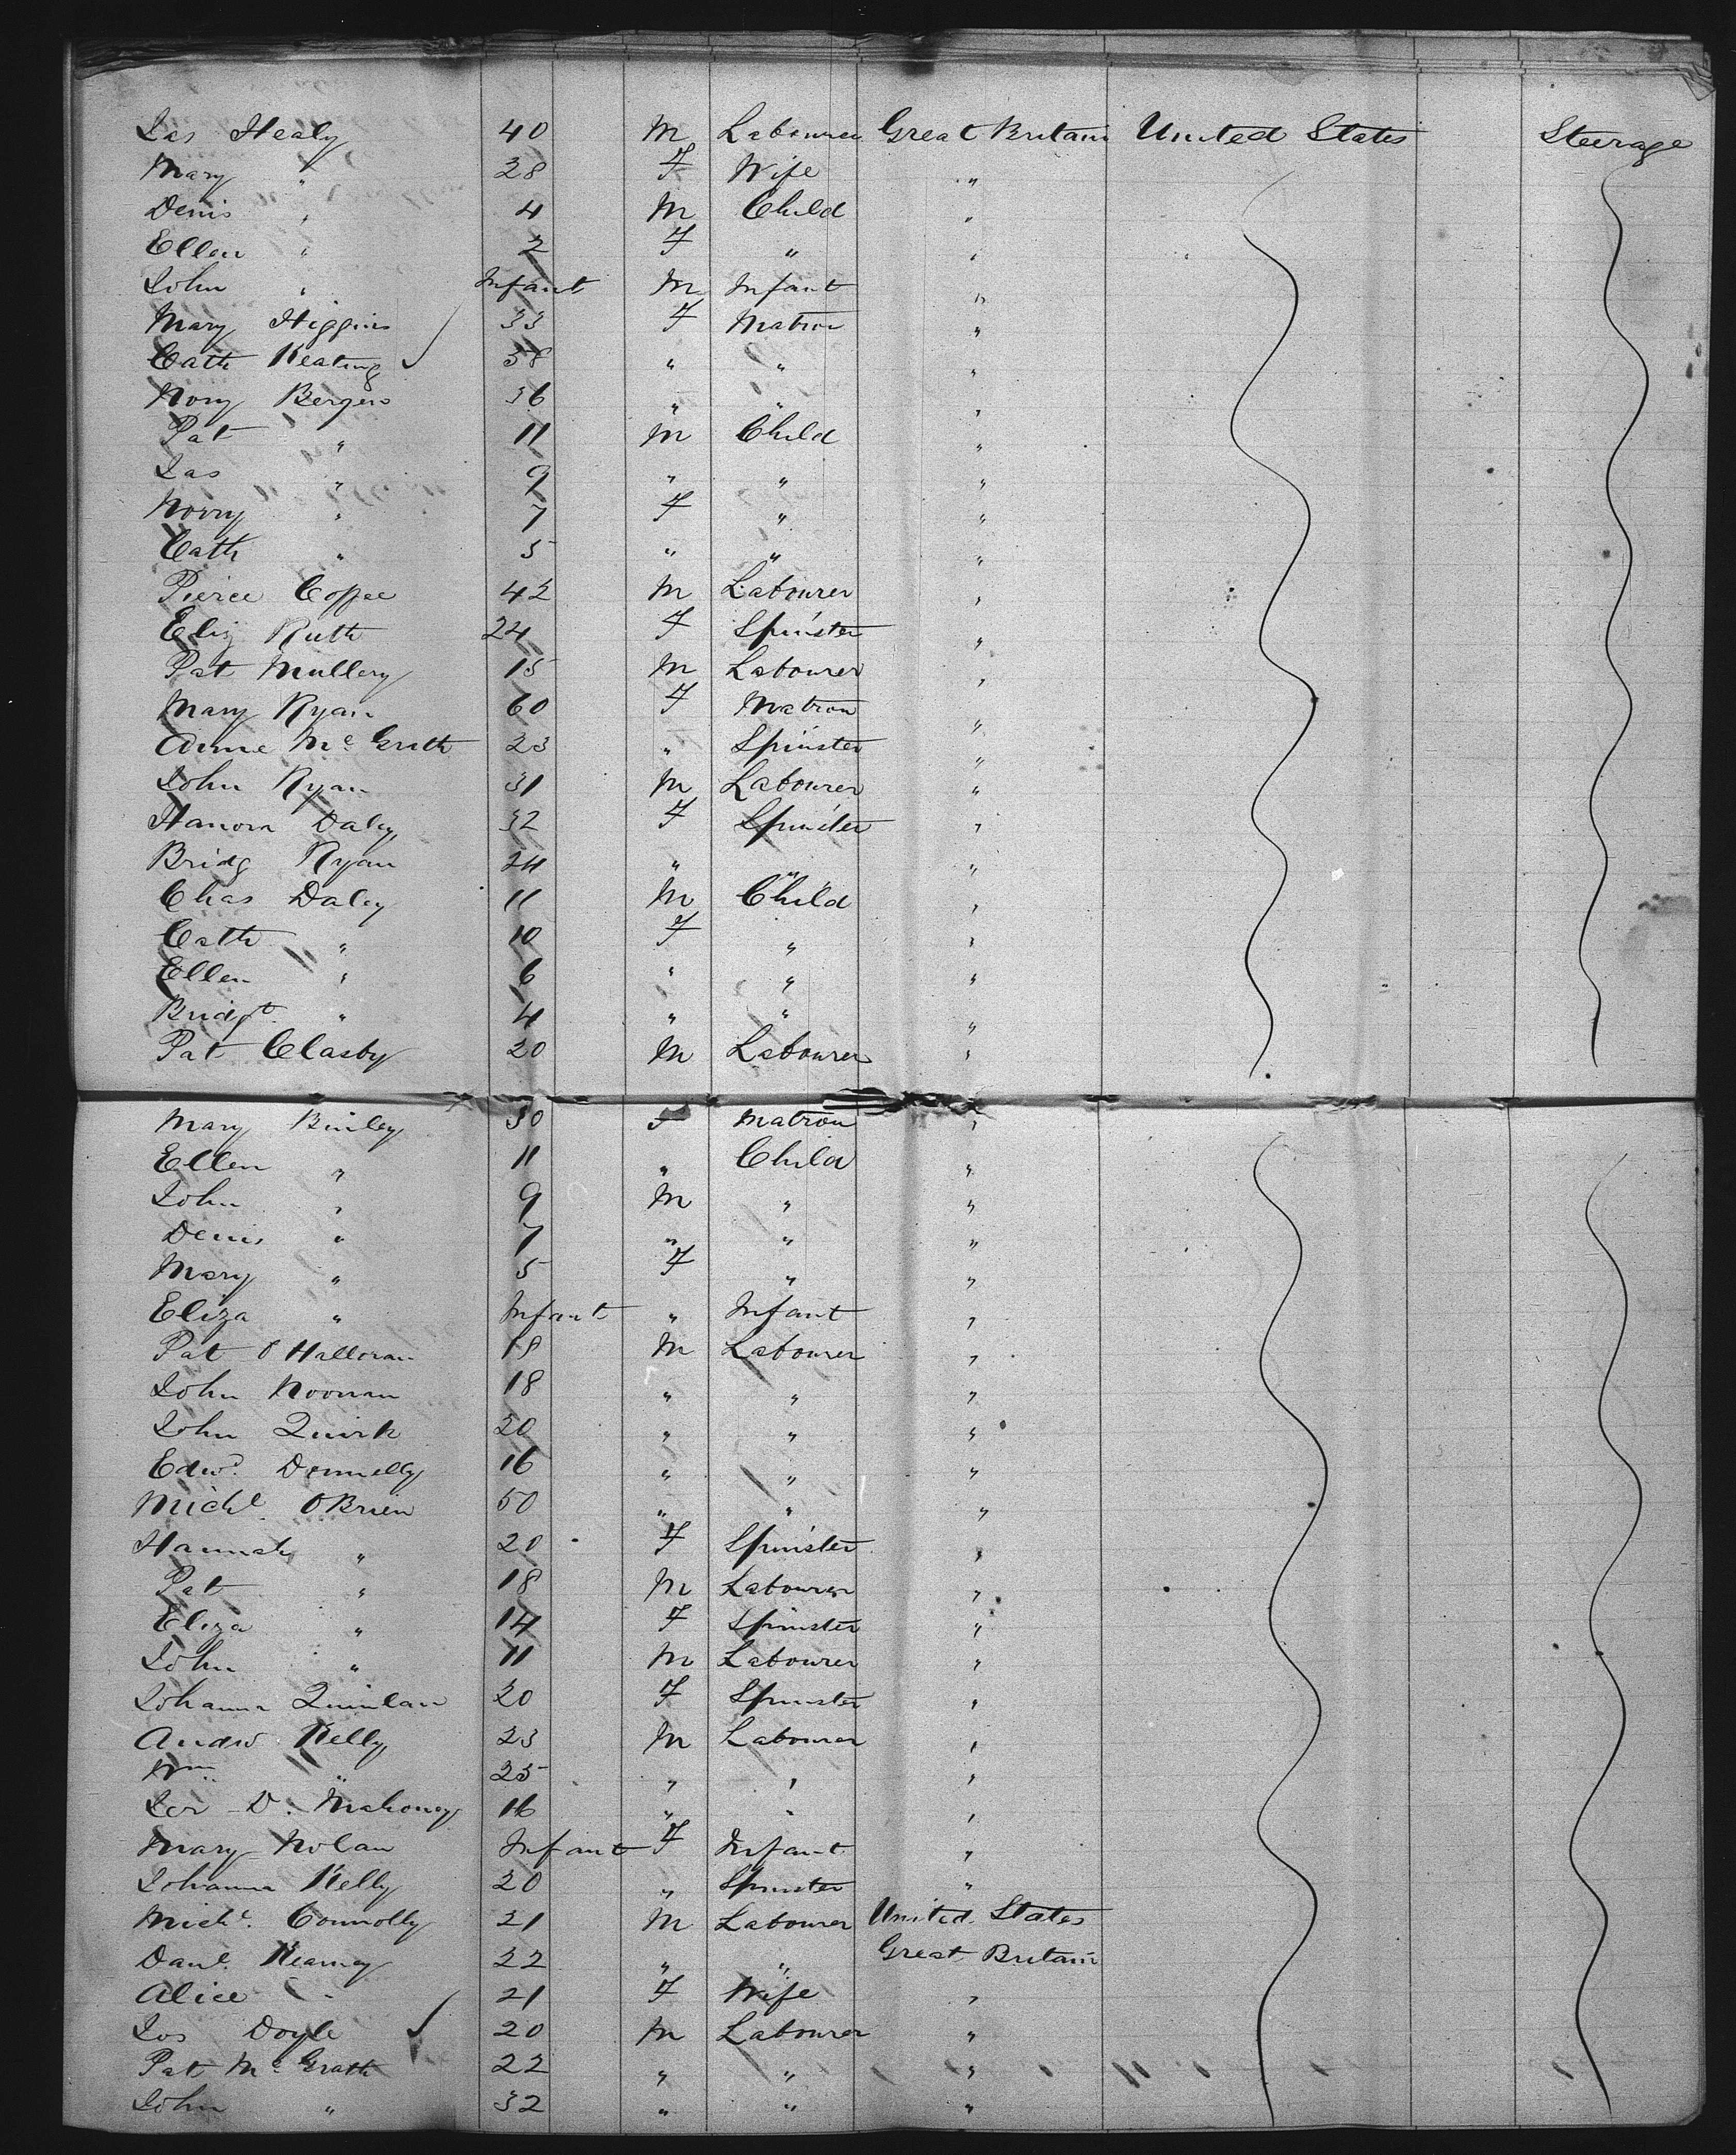 Jas Healy 40 M Labourer Great Britain United States Steerage
Mary " 28 F Wife "
Denis " 4 M Child "
Ellen " 2 F " "
John " Infant M Infant "
Mary Higgins 33 F Matron "
Cath Keating 38 " " "
Nory Bergin 36 " " "
Pat " 11 M Child "
Jas " 9 " " "
Norry " 7 F " "
Cath " 5 " " "
Pierce Coffee 42 M Labourer "
Eliz Ruth 24 F Spinster "
Pat Mullery 15 M Labourer "
Mary Ryan 60 F Matron "
Mc Grath 23 " Spinster "
John Ryan 31 M Labourer "
Hanora Daley 32 F Spinster "
Bridg Ryan 24 " " "
Chas Daley 11 M Child "
Cath " 10 F " "
Ellen " 6 " " "
Bridgt " 4 " " "
Pat Clasby 20 M Labourer "
Mary Binley 30 F Matron "
Ellen " 11 " Child "
John " 9 M " "
Denis " 7 " " "
Mary " 5 F " "
Eliza " Infant " Infant "
Pat O'Halloran 18 M Labourer "
John Noonan 18 " " "
John Quirk 20 " " "
Edwd. Donnelly 16 " " "
Michl. O'Brien 50 " " "
Hannah " 20 F Spinster "
Pat " 18 M Labourer "
Eliza " 14 F Spinster "
John " 11 M Labourer "
Johanna Quinlan 20 F Spinster "
Andw Kelly 23 M Labourer "
Wm " 25 " " "
Jer D. Mahoney 16 " " "
Mary Nolan Infant F Infant "
Johanna Kelly 20 " Spinster "
Michl. Connolly 21 M Labourer United States
Danl. Kearney 22 " " Great Britain
Alice " 21 F Wife "
Jos Doyle 20 M Labourer "
Pat Mc Grath 22 " " "
John " 32 " " "